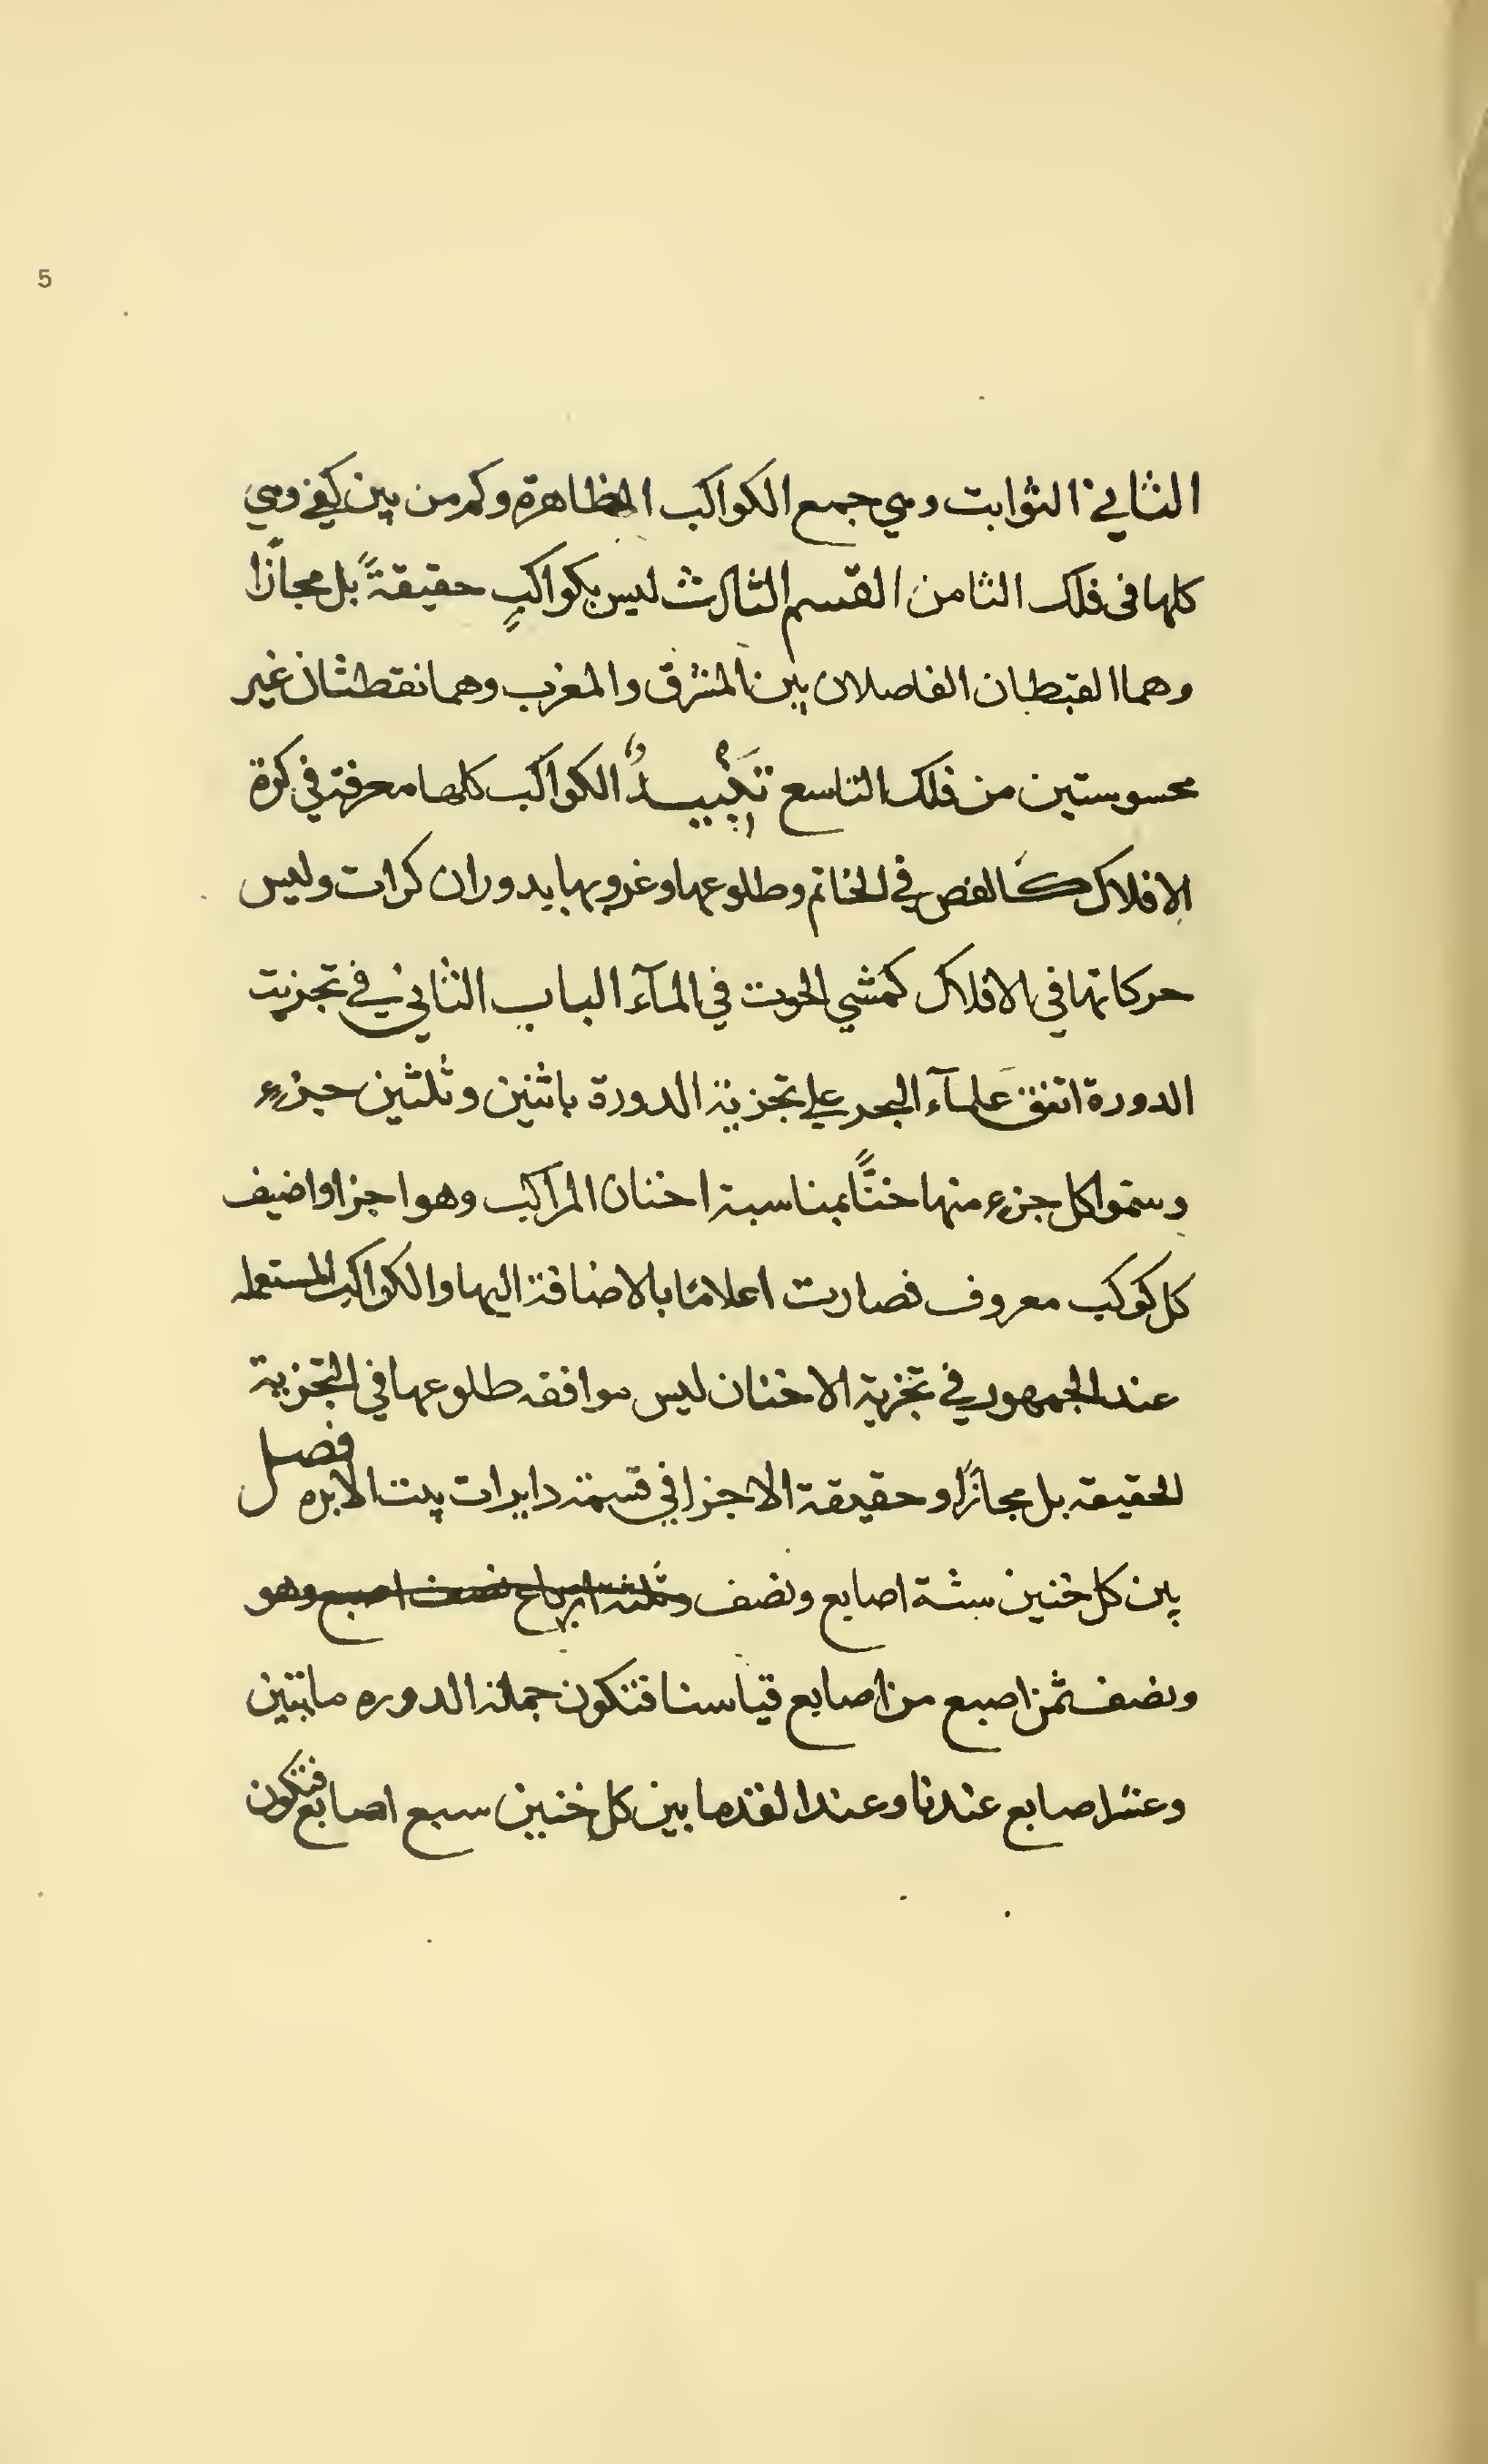 5
الثاني الثوابت وهي جمع الكواكب الظاهرة وكم من بين كفي وهي
كلها فى فلك الثامن القسم الثالث ليس بكواكبٍ حقيقةً بل مجازًا
وهما القبطان الفاصلان بين المشرق والمغرب وهما نقطتان غير
محسوستين من فلك التاسع تَكْبِيدٌ الكواكب كلها معرفة في كرة
الافلاك كالفص في الخاتم وطلوعها وغروبها بدوران كرات وليس
حركاتها في الافلاك كمشي الحوت في المآء الباب الثاني في تجزيت
الدورة اتفق علمآء البحر علي تجزية الدورة باثنين وثلثين جزءٍ
وسمّوا كل جزء منها خنًّا بمناسبة اخنان المراكب وهو اجزا واضيف
كل كوكب معروف فصارت اعلامًا بالاضافة اليها والكواكب المستعمله
عند الجمهور في تجزية الاخنان ليس موافقه طلوعها في التجزية
الحقيقه بل مجازًا وحقيقة الاجزا في قسمة دايرات بيت الابره فصل
بين كل خنين ستة اصابع ونصف وثلثة ارباع نصف اصبع وهو
ونصف ثمن اصبع من اصابع قياسنا فتكون جملة الدوره مايتين
وعشر اصابع عندنا وعند القدما بين كل خنين سبع اصابع فتكون